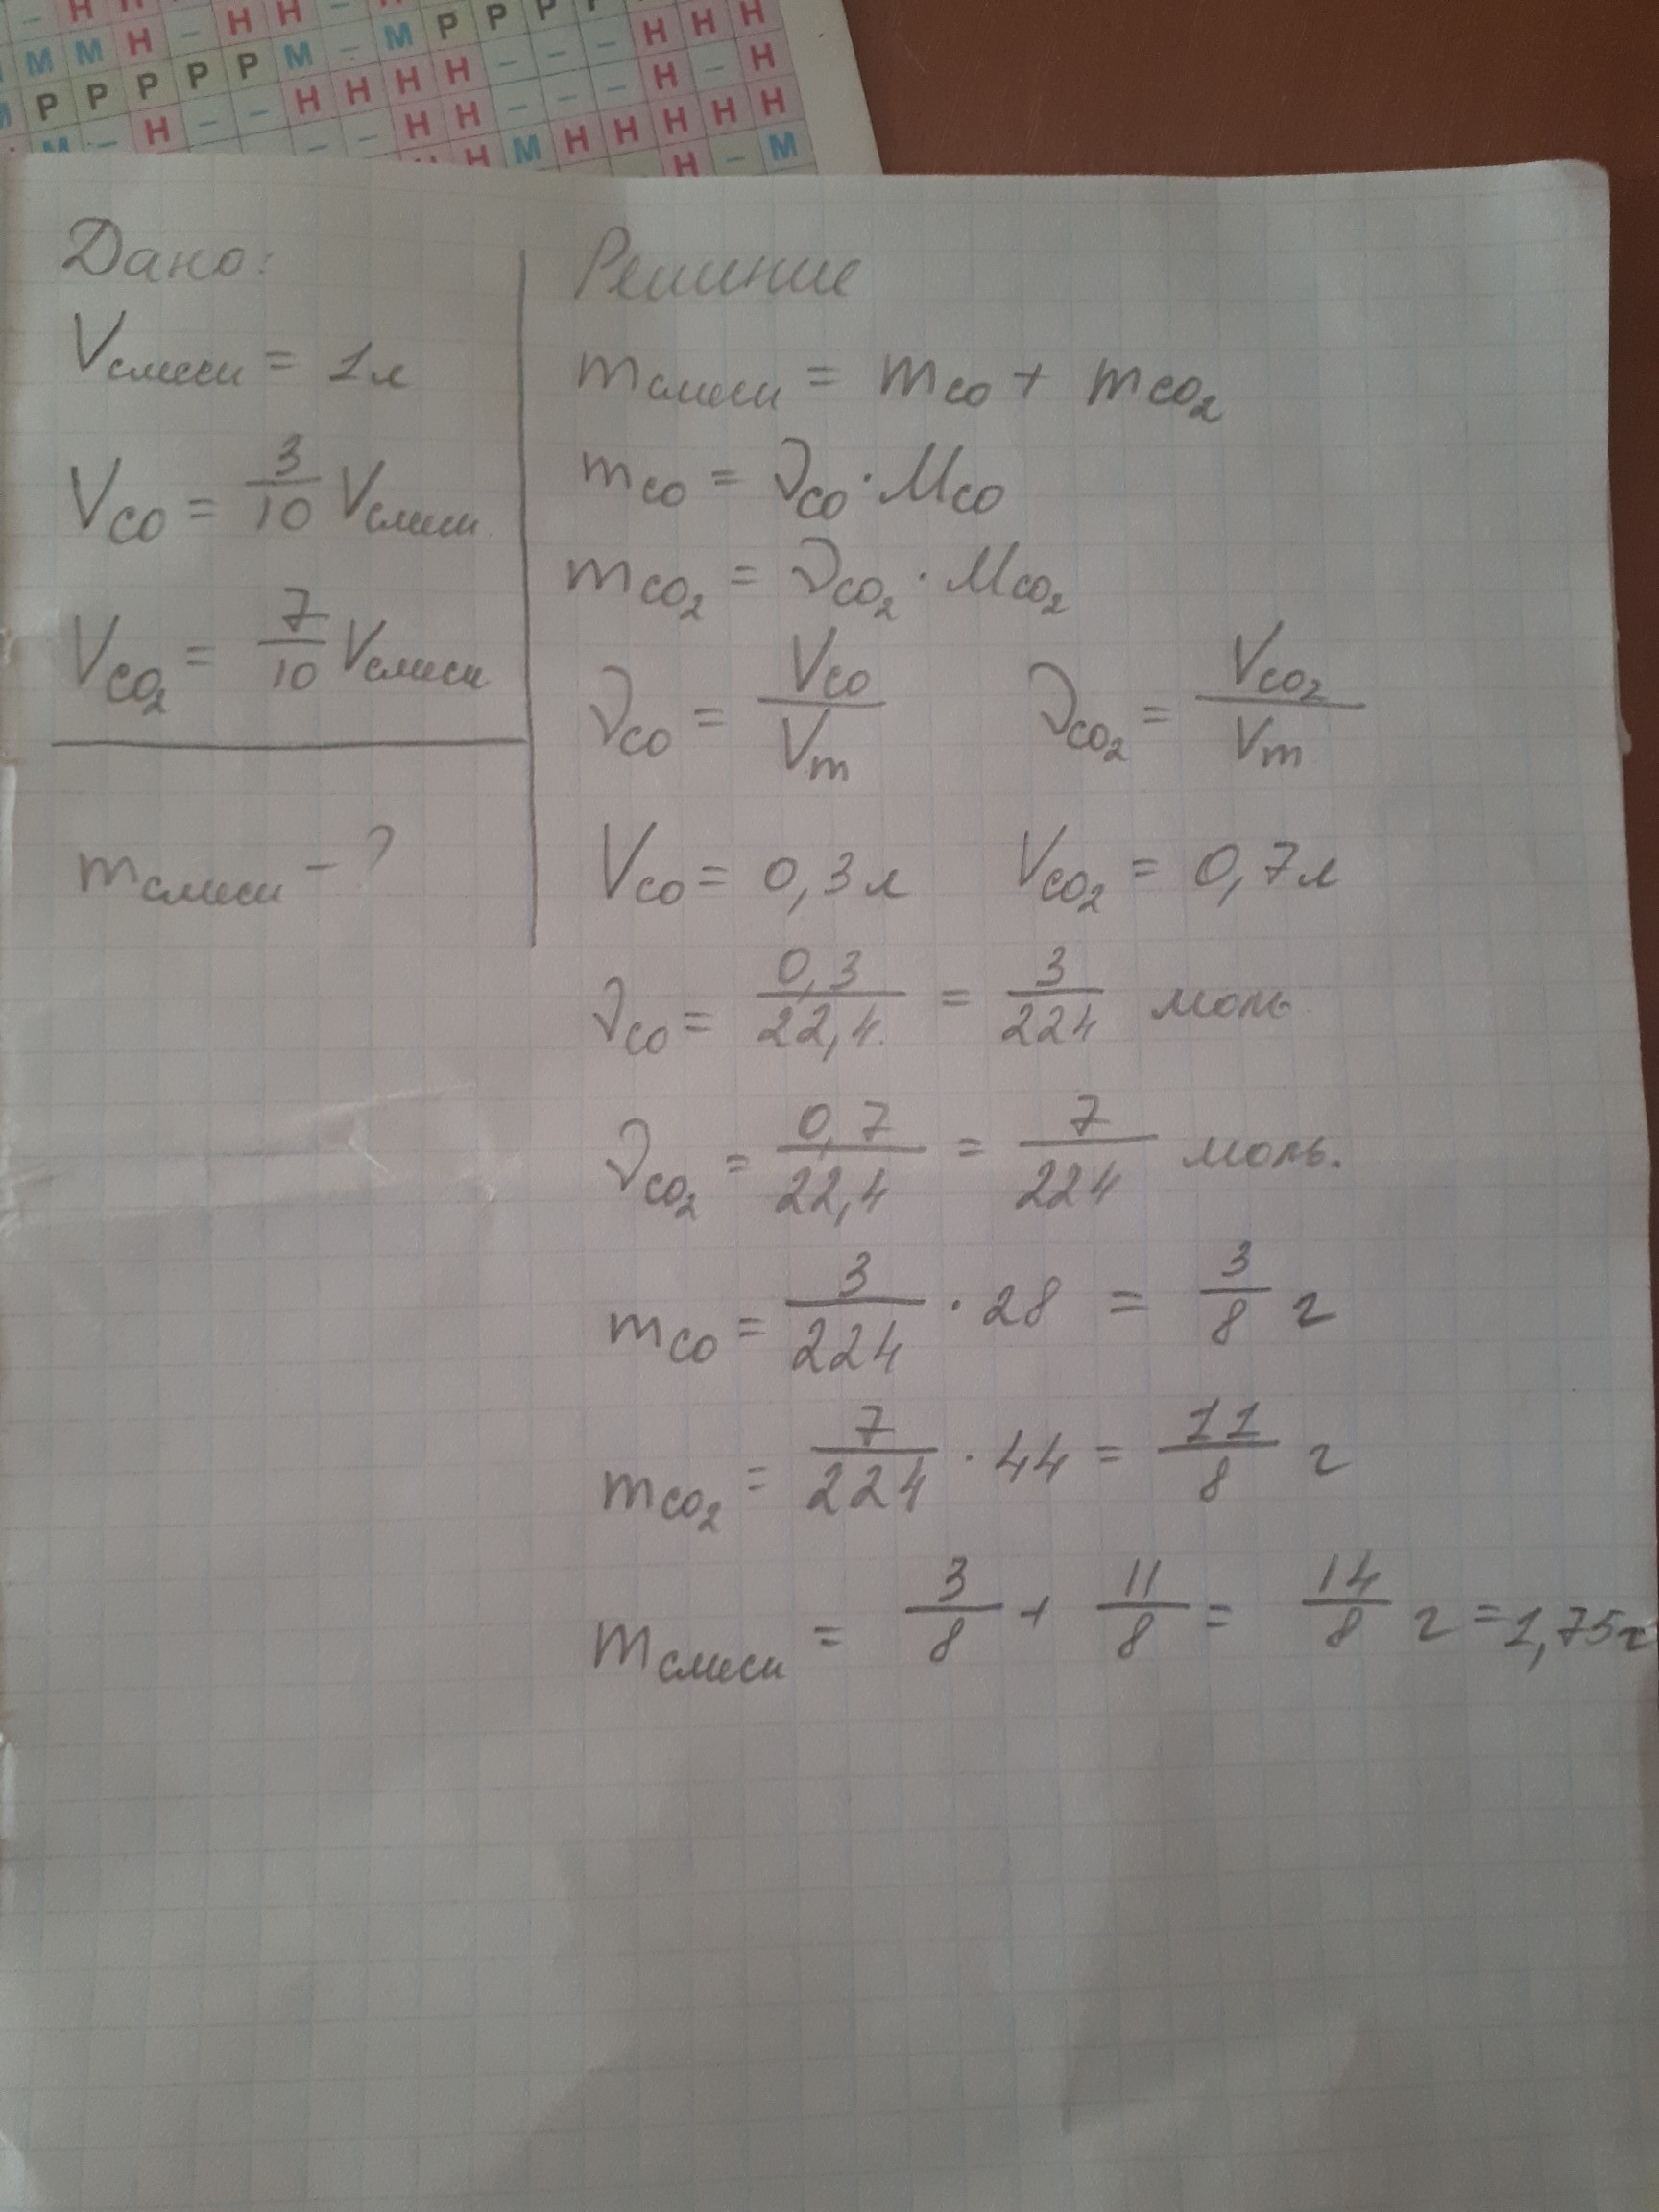 – Н Н – Н Н –
М М Н – Н Н – М Р Р Р Р
М Р Р Р Р Р М – М – – – Н Н Н
М – Н – – Н Н Н Н – – – Н – Н
– – Н Н – – – Н Н Н
Н Н М Н Н Н Н Н
Н – М
Дано:
Vсмеси = 1л
VCO = 3/10 Vсмеси
VCO2 = 7/10 Vсмеси
mсмеси – ?
Решение
mсмеси = mCO + mCO2
mCO = νCO · MCO
mCO2 = νCO2 · MCO2
νCO = VCO/Vm νCO2 = VCO2/Vm
VCO = 0,3л VCO2 = 0,7л
νCO = 0,3/22,4 = 3/224 моль
νCO2 = 0,7/22,4 = 7/224 моль.
mCO = 3/224 · 28 = 3/8 г
mCO2 = 7/224 · 44 = 11/8 г
mсмеси = 3/8 + 11/8 = 14/8 г = 1,75г